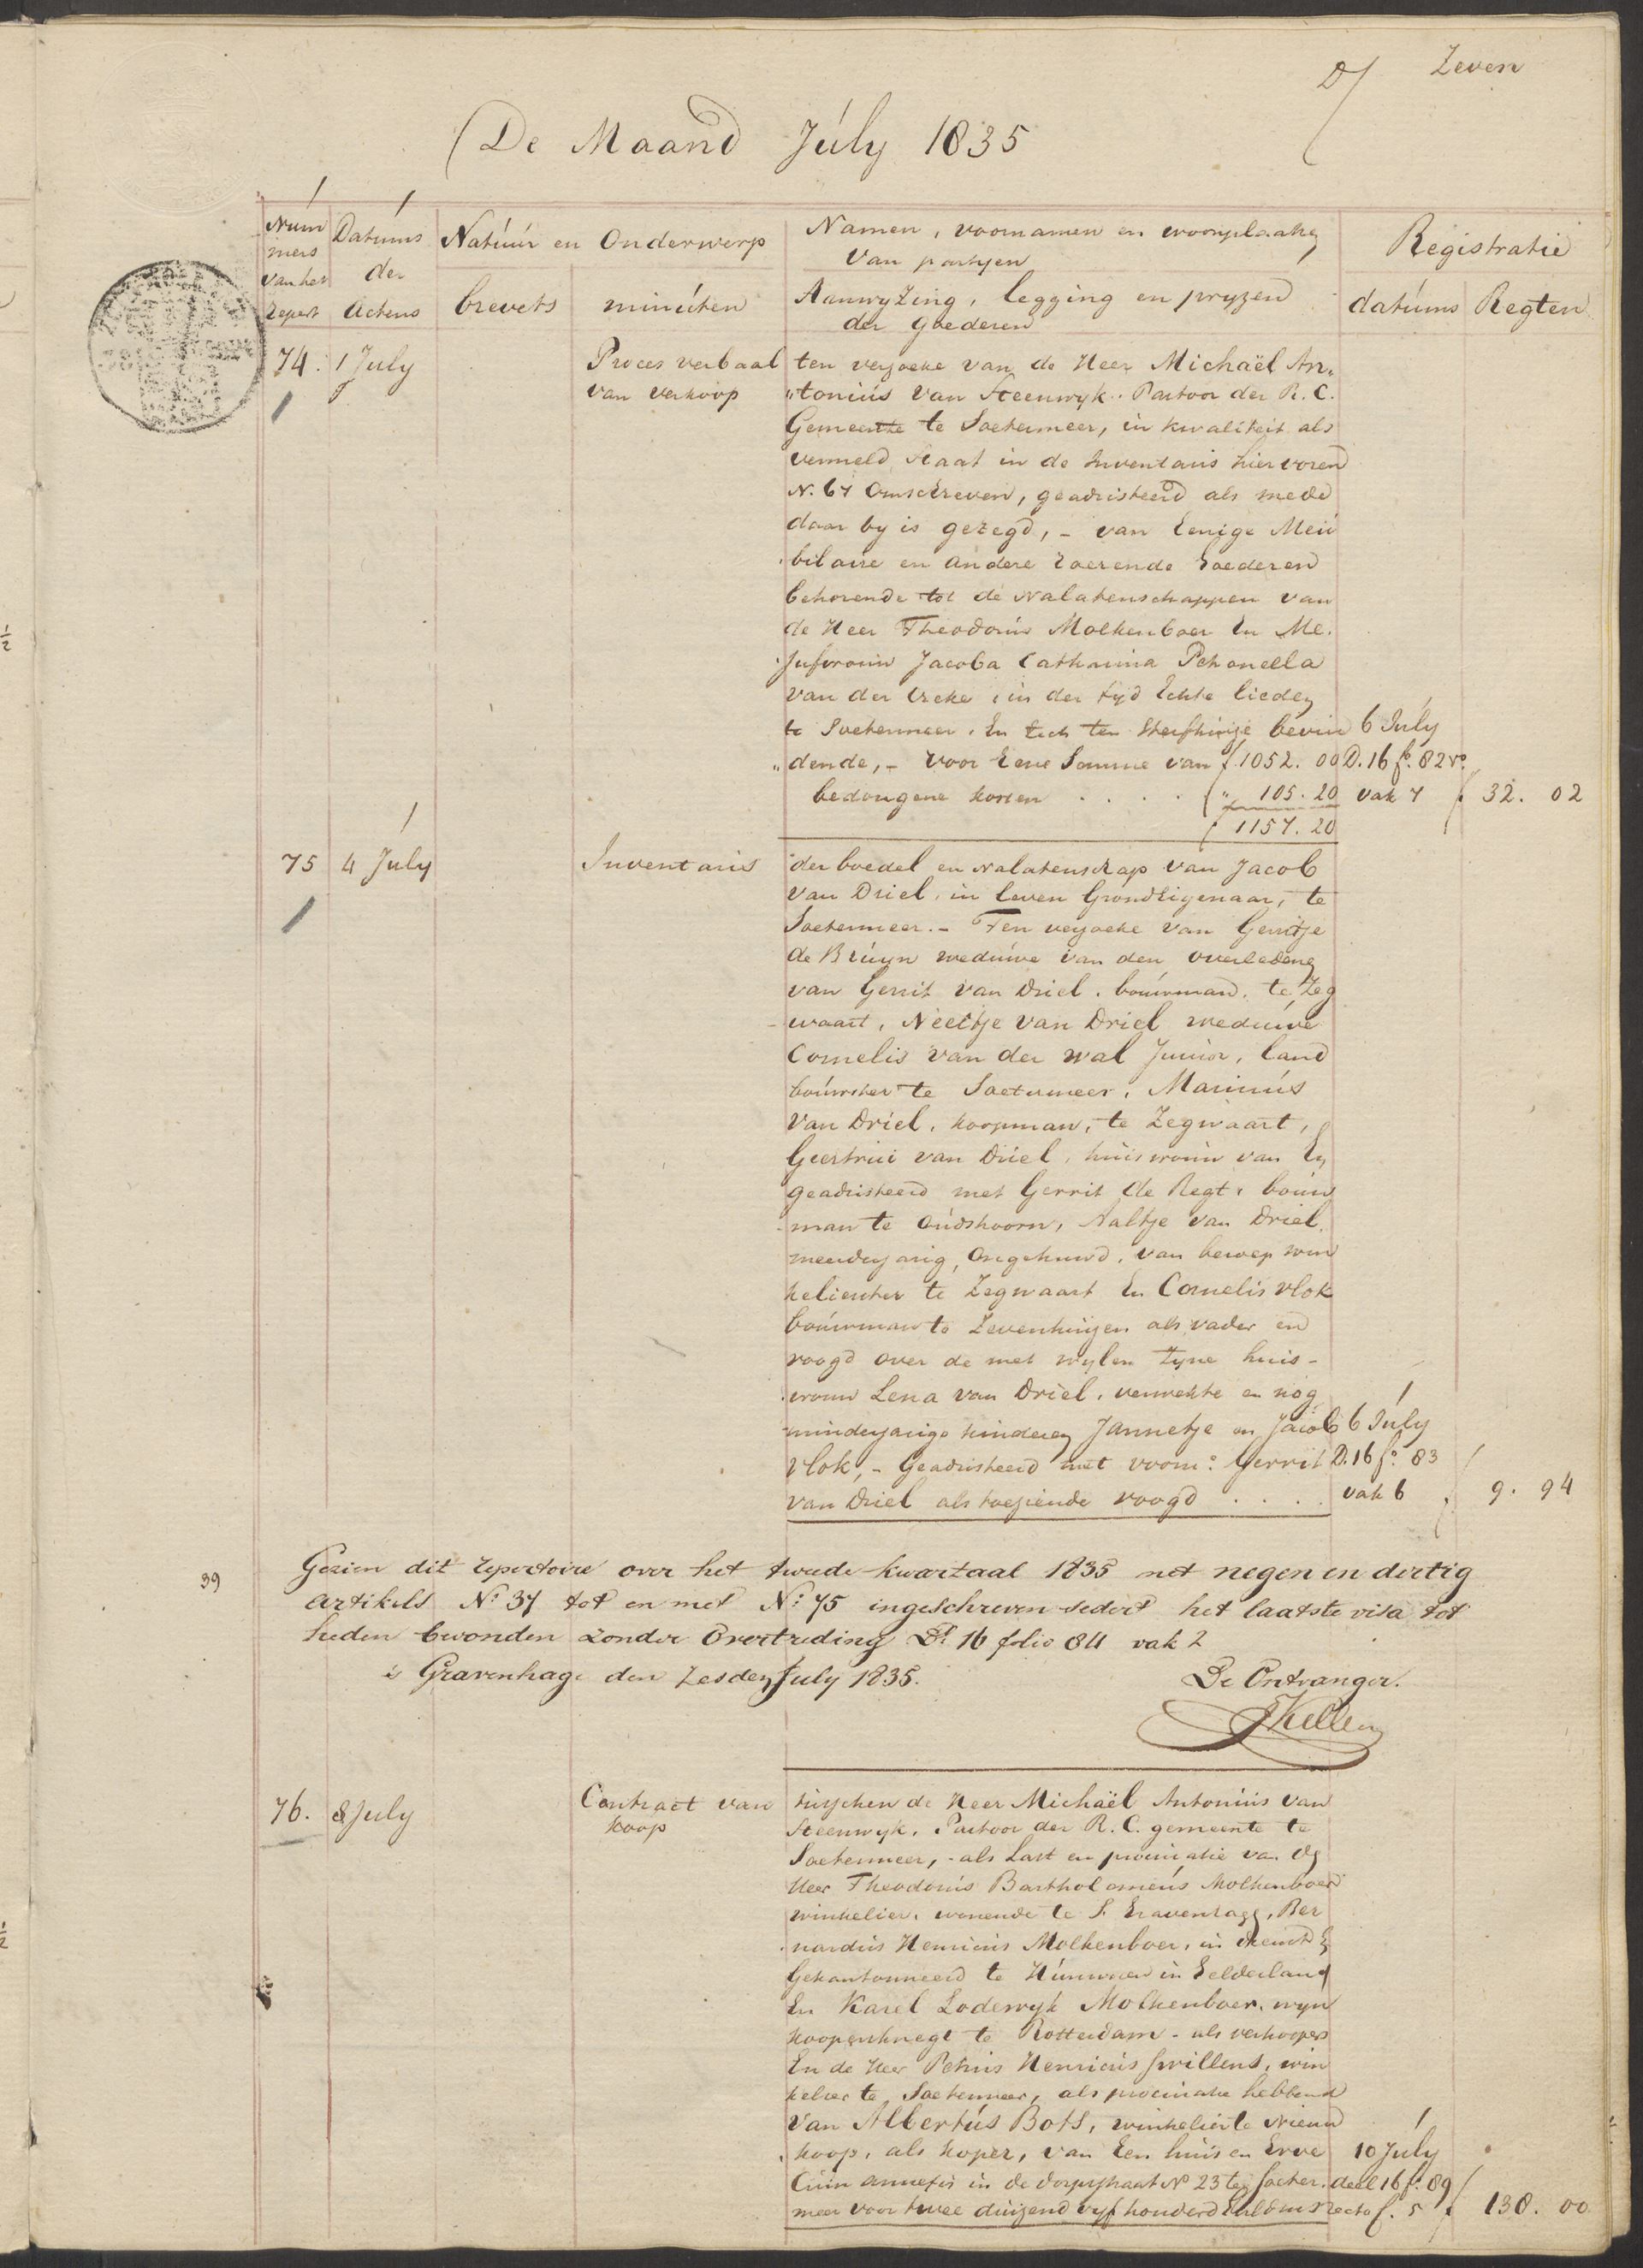 Zeven
De Maand July 1835
Num
mers
van het
repert
Datums
der
Actens
Natuur en Onderwerp
brevets
minuten
Namen, voornamen en woonplaatsen
van partyen
Aanwyzing, legging en pryzen
der goederen
Registratie
datums
Regten
74. 1 July
Proces verbaal
van verkoop
ten verzoeke van de Heer Michaël An„
„tonius van Steenwyk. Pastoor der R. C.
Gemeente te Soetermeer, in kwaliteit als
vermeld staat in de Inventaris hiervoren
N. 67 omschreven, geadsisteerd als mede
daar by is gezegd, - van Eenige Meu
bilaire en andere roerende Goederen
behorende tot de Nalatenschappen van
de Heer Theodorus Molkenboer En Me.
Jufvrouw Jacoba Catharina Petronella
van der Kreke, in der tyd Echte lieden
te Soetermeer. En ten Sterfhuize bevin
„dende, - voor Eene Somme van f. 1052. 00
bedongene kosten . . . . „ 105. 20
f 1157. 20
6 July
D. 16 fo. 82 vo.
vak 7
f 32. 02
75 4 July
Inventaris
der boedel en nalatenschap van Jacob
van Driel, in leven Grondeigenaar, te
Soetermeer. - Ten verzoeke van Gerritje
de Bruyn weduwe van den overledene
van Gerrit van Driel, bouwman, te Zeg
-waart, Neeltje van Driel weduwe
Cornelis van der Wal Junior, land
bouwster te Soetermeer, Marinus
van Driel, koopman, te Zegwaart,
Geertrui van Driel, huisvrouw van En
geadsisteerd met Gerrit de Regt, bouw
-man te Oudshoorn, Aaltje van Driel
meerderjarig, Ongehuwd, van beroep win
kelierster te Zegwaart En Cornelis Vlok
bouwman te Zevenhuizen als vader en
voogd over de met wylen zyne huis-
vrouw Lena van Driel, verwekte en nog
minderjarige kinderen Jannetje en Jacob
Vlok, - Geadsisteerd met voorn: Gerrit
van Driel als toeziende voogd . . . .
6 July
D. 16 fo. 83
vak 6
f 9. 94
39
Gezien dit repertoire over het tweede kwartaal 1835 met negen en dertig
artikels No. 37 tot en met No. 75 ingeschreven sedert het laatste visa tot
heden bevonden zonder Overtreding Dl. 16 folio 84 vak 2
's Gravenhage den Zesden July 1835.
De Ontvanger.
76. 8 July
Contract van
koop
tusschen de Heer Michaël Antonius van
Steenwyk, Pastoor der R. C. gemeente te
Soetermeer, - als Last en procuratie van de
Heer Theodorus Bartholomeus Molkenboer
winkelier, wonende te S. Gravenhage, Ber
nardus Henricus Molkenboer, in dienst En
Gekantonneerd te in Gelderland
En Karel Lodewyk Molkenboer, wyn
koopersknegt te Rotterdam - als verkoopers
En de Heer Petrus Henricus Swillens, win
kelier te Soetermeer, als procuratie hebbend
van Albertus Bots, winkelier te Nieuw
koop, als koper, van Een huis en Erve
Cum annexis in de dorpsstraat No 23 te Soeter.
meer voor twee duizend vyf honderd Guldens
10 July
deel 16 fo. 89
recto f. 5
f 130. 00